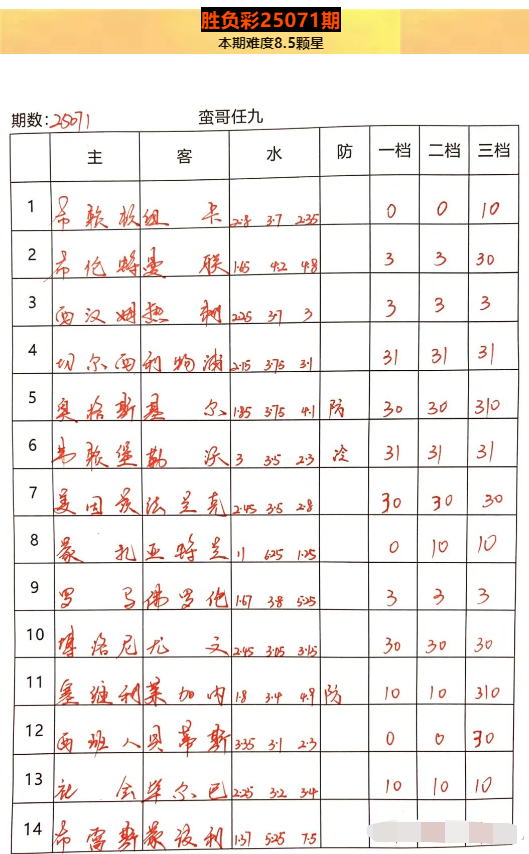 胜负彩25071期
本期难度8.5颗星
期数:25071 蛮哥任九
主 客 水 防 一档 二档 三档
1 布莱顿 纽卡 2.8 3.7 2.35 0 0 10
2 布伦特 曼联 1.65 4.2 4.8 3 3 30
3 西汉姆 热刺 2.25 3.7 3 3 3 3
4 切尔西 利物浦 2.15 3.75 3.1 31 31 31
5 奥格斯 基尔 1.85 3.75 4.1 防 30 30 310
6 弗赖堡 勒沃 3 3.5 2.3 冷 31 31 31
7 美因茨 法兰克 2.45 3.5 2.8 30 30 30
8 蒙扎 亚特兰 11 6.25 1.25 0 10 10
9 罗马 佛罗伦 1.67 3.8 5.25 3 3 3
10 博洛尼 尤文 2.45 3.05 3.15 30 30 30
11 塞维利 莱加内 1.8 3.4 4.9 防 10 10 310
12 西班人 贝蒂斯 3.35 3.1 2.3 0 0 30
13 社会 毕尔巴 2.25 3.2 3.4 10 10 10
14 布雷斯 蒙彼利 1.37 5.25 7.5